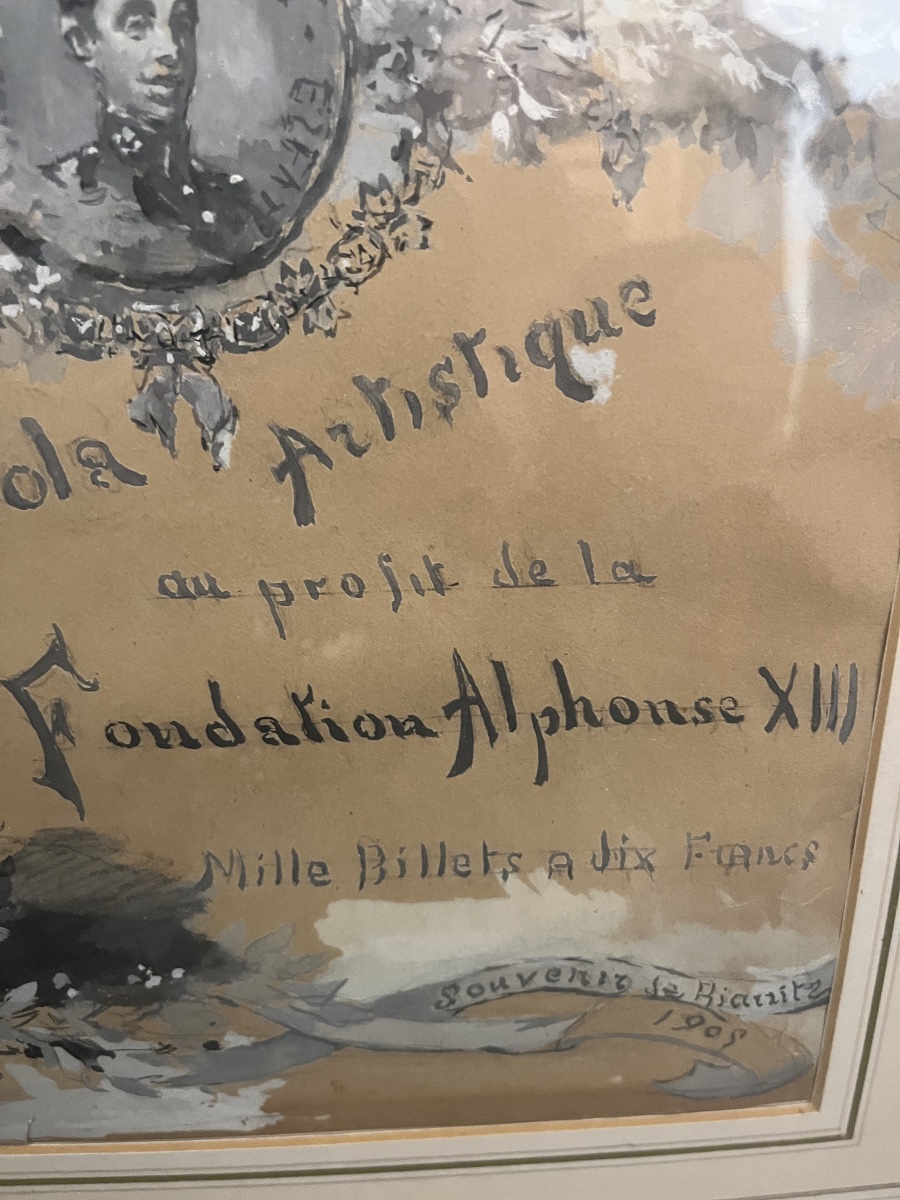 ola Artistique
au profit de la
Fondation Alphonse XIII
Mille Billets a dix Francs
Souvenir de Biarritz
1905